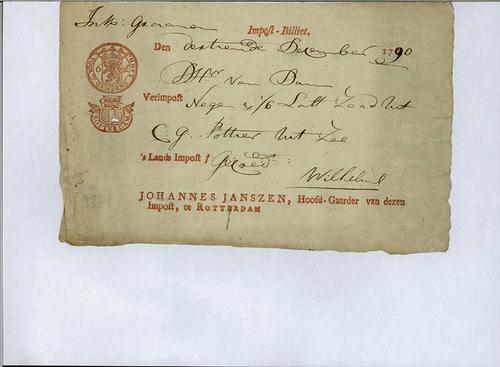 Impost-Billiet,
Den dertiende December 1790
D Hr van Dam
Verimpost Negen 1/6 Last Zaad uit
C. G. Pottier uit Zee
's Lands Impost ƒ
JOHANNES JANSZEN, Hoofd-Gaarder van dezen
Impost, te ROTTERDAM